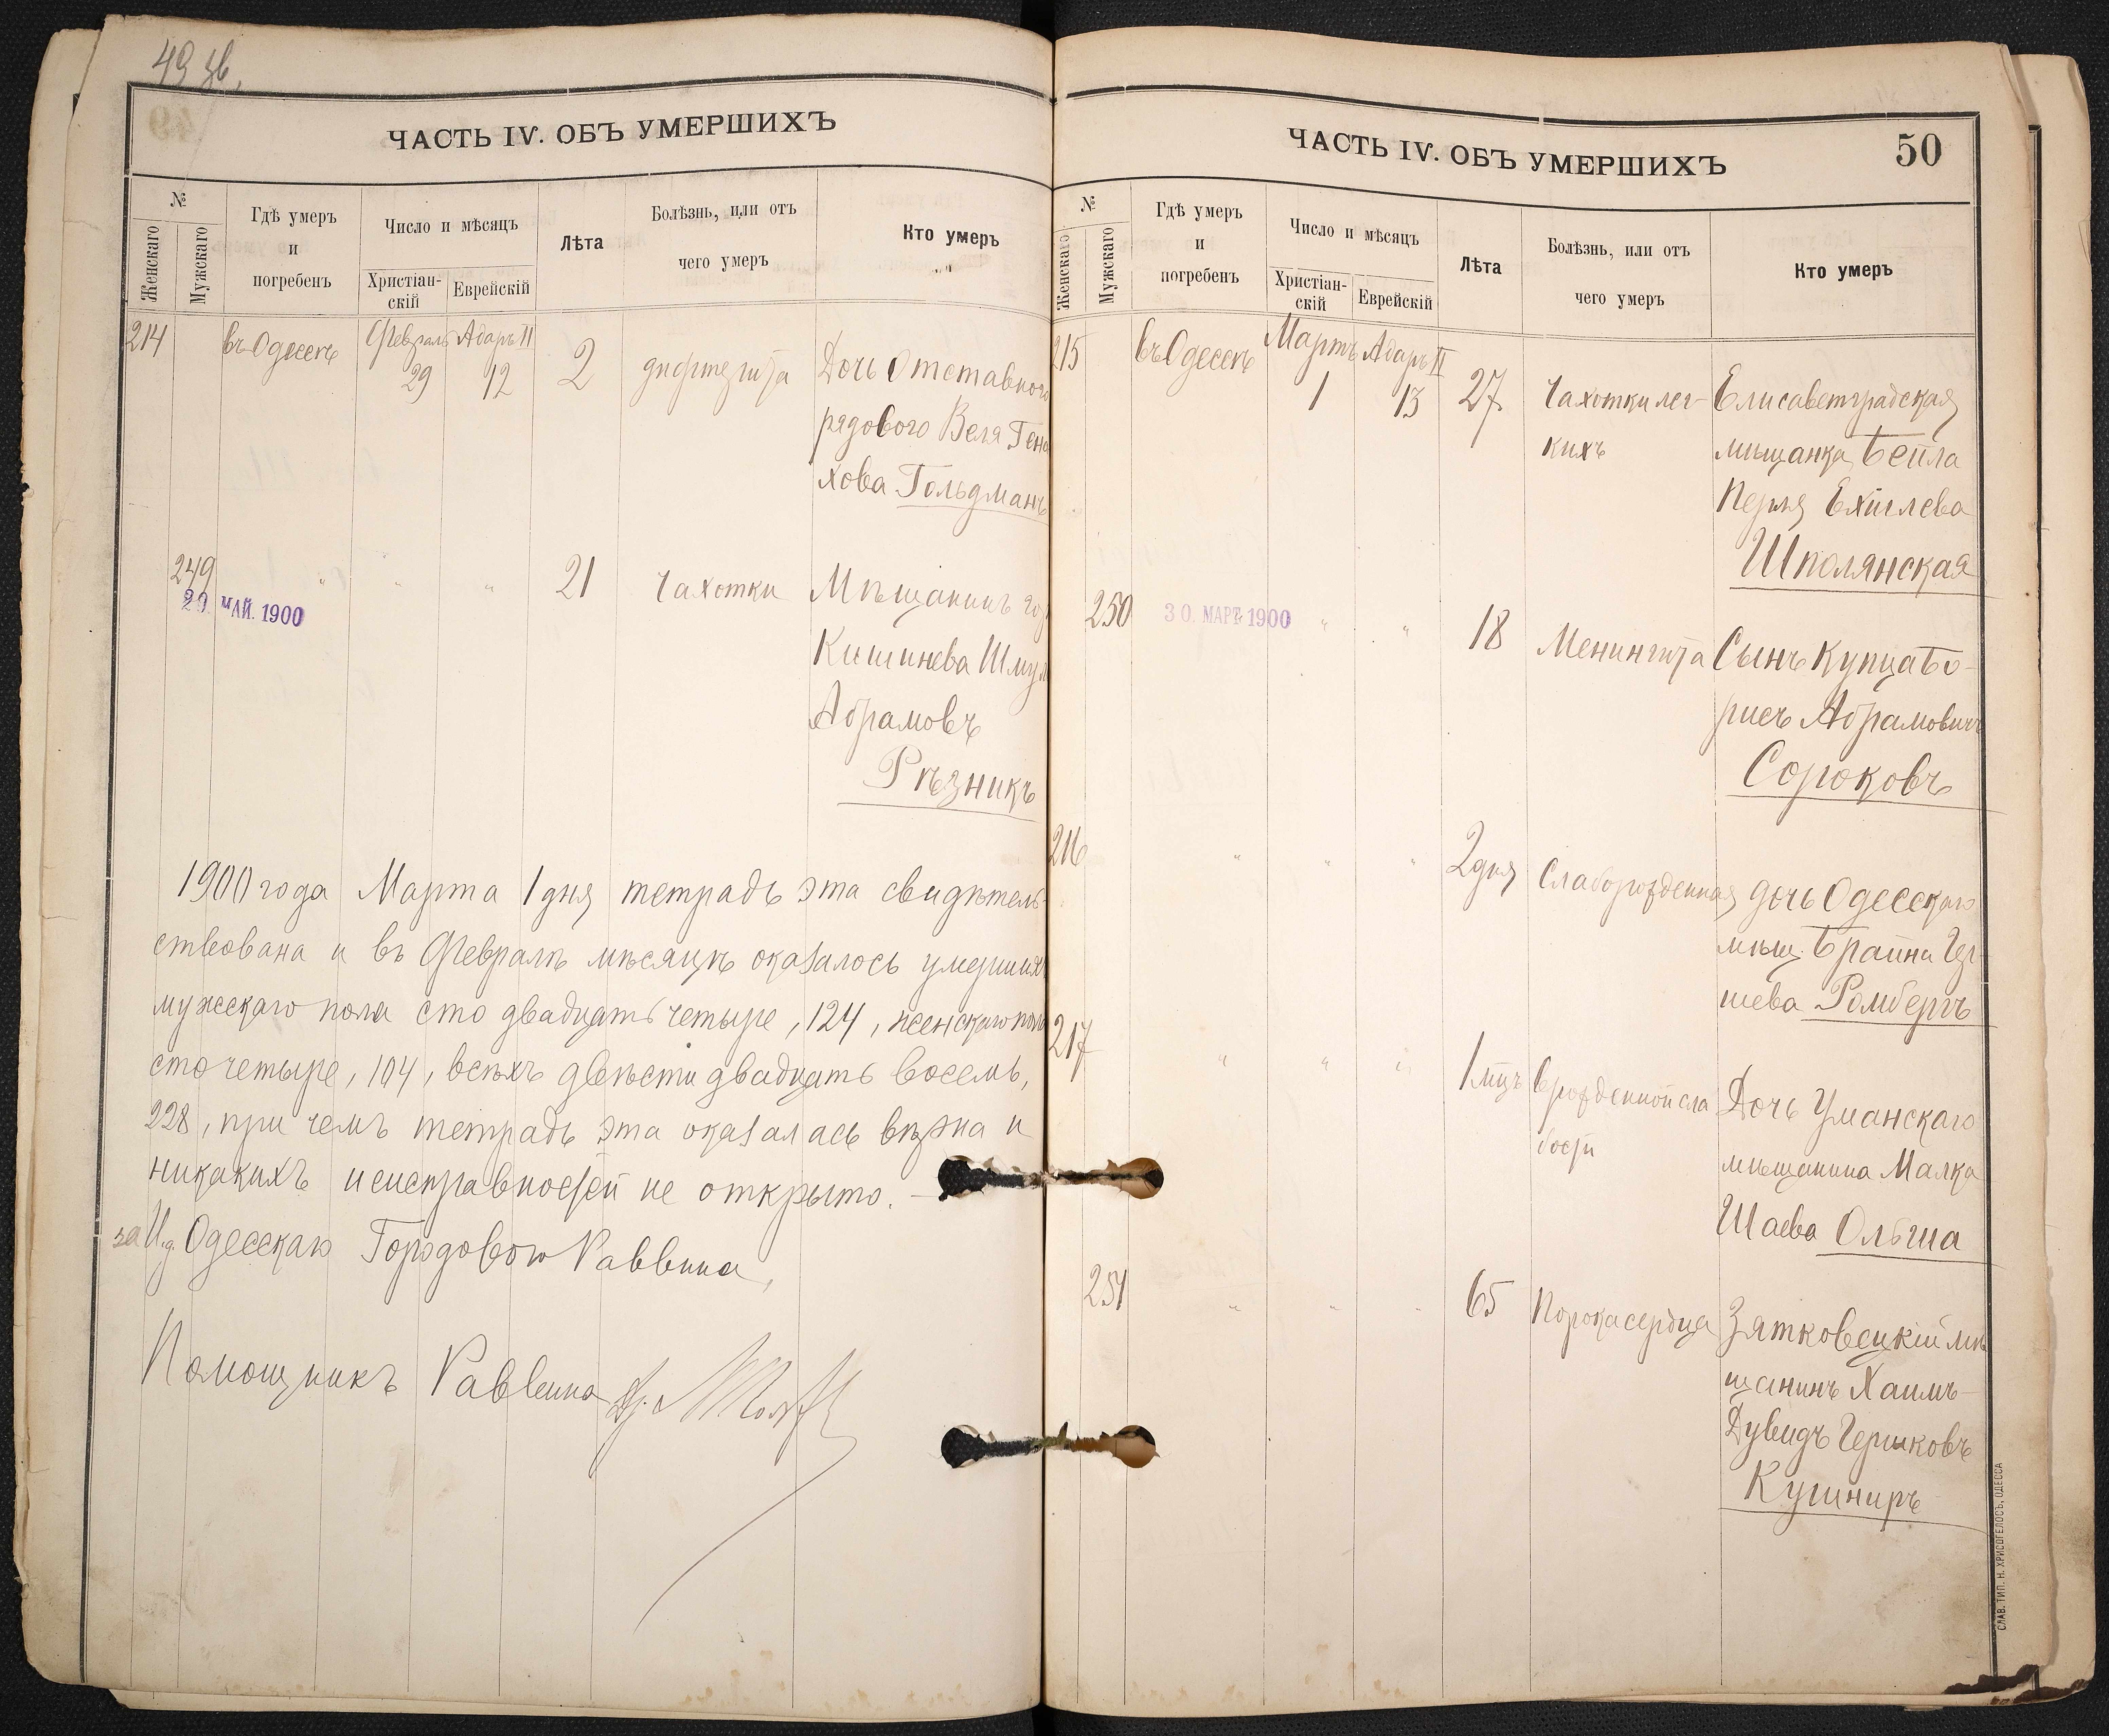 49 зв.
ЧАСТЬ IV. ОБЪ УМЕРШИХЪ
№
Женскаго
Мужскаго
Гдѣ умеръ
и
погребенъ
Число и мѣсяцъ
Христіан-
скій
Еврейскій
Лѣта
Болѣзнь, или отъ
чего умеръ
Кто умеръ
214
въ Одессѣ
Февраль
29
Адаръ II
12
2
дифтерита
Дочь Отставного
рядового Веля Гено
хова Гольдманъ
249
29. МАЙ. 1900
"
"
"
21
Чахотки
Мѣщанинъ гор
Кишинева Шмул
Абрамовъ
Рѣзникъ
1900 года Марта 1 дня тетрадь эта свидѣтель-
ствована и въ Февралѣ мѣсяцѣ оказалось умершихъ
мужескаго пола сто двадцать четыре, 124, женскаго пола
сто четыре, 104, всѣхъ двѣсти двадцать восемь,
228, при чемъ тетрадь эта оказалась вѣрна и
никакихъ неисправностей не открыто. —
за И.д. Одесскаго Городового Раввина,
Помощникъ Раввина
ЧАСТЬ IV. ОБЪ УМЕРШИХЪ
50
№
Женскаго
Мужскаго
Гдѣ умеръ
и
погребенъ
Число и мѣсяцъ
Христіан-
скій
Еврейскій
Лѣта
Болѣзнь, или отъ
чего умеръ
Кто умеръ
215
въ Одессѣ
Мартъ
1
Адаръ II
13
27
Чахотки лег-
кихъ
Елисаветградская
мѣщанка Бейла
Перля Ехилева
Школянская
250
30. МАРТ. 1900
"
"
18
Менингита
Сынъ Купца Бо-
рисъ Абрамовичъ
Сороковъ
216
"
"
"
2 дня
Слаборожденная
дочь Одесскаго
мѣщ. Брайна Гер
шева Ромбергъ
217
"
"
"
1 мцъ
Врожденной сла
бости
Дочь Уманскаго
мѣщанина Малка
Шаева Ольша
251
"
"
"
65
Порока сердца
Зятковецкій мѣ
щанинъ Хаимъ-
Дувидъ Гершковъ
Кушниръ
СЛАВ. ТИП. Н. ХРИСОГЕЛОСЪ, ОДЕССА